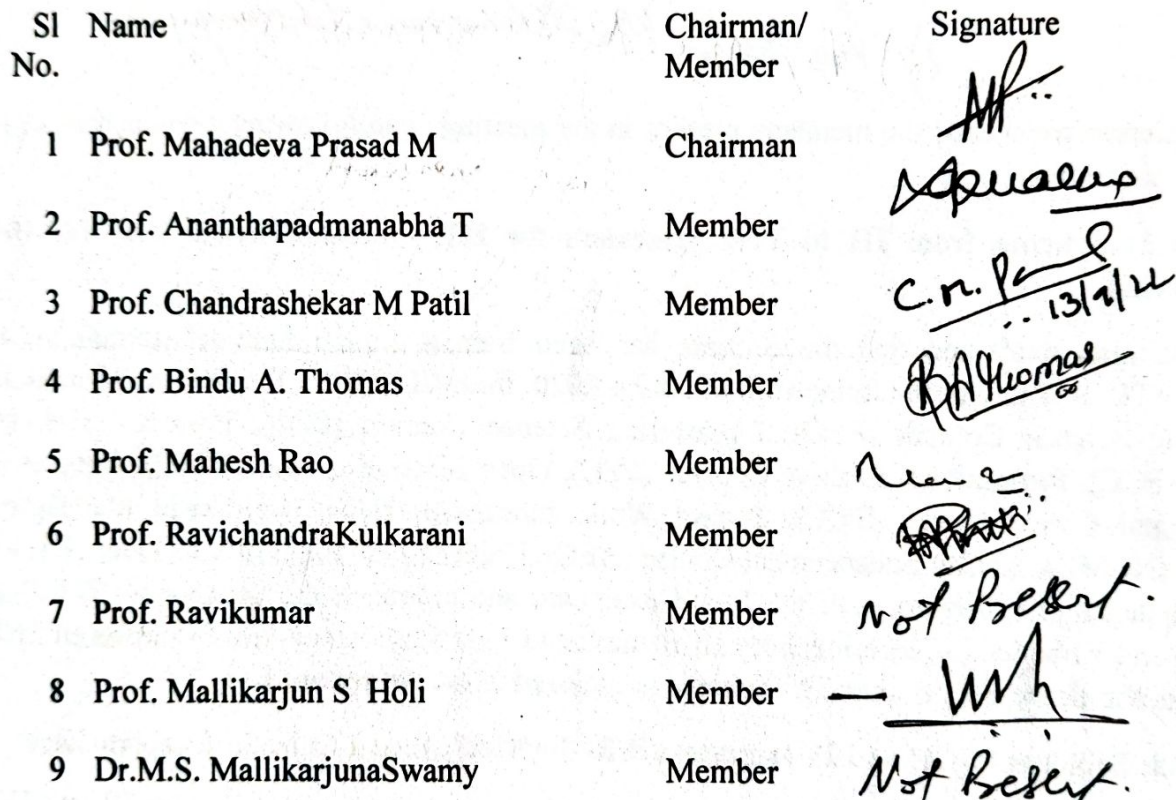 Sl Name Chairman/ Signature
No. Member
1 Prof. Mahadeva Prasad M Chairman
2 Prof. Ananthapadmanabha T Member
3 Prof. Chandrashekar M Patil Member C.M. Patil
13/9/22
4 Prof. Bindu A. Thomas Member BAThomas
5 Prof. Mahesh Rao Member
6 Prof. RavichandraKulkarani Member
7 Prof. Ravikumar Member Not Present.
8 Prof. Mallikarjun S Holi Member
9 Dr.M.S. MallikarjunaSwamy Member Not Present.